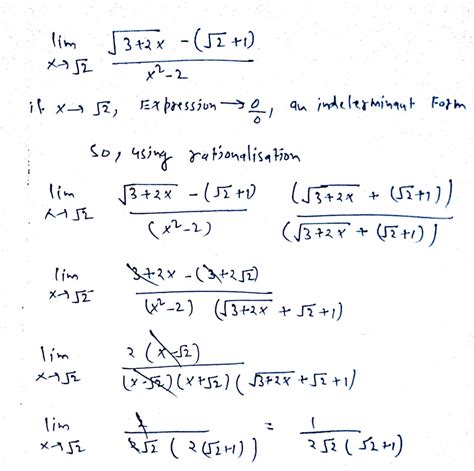 lim x→√2 (√(3+2x) − (√2+1)) / (x²−2)
if x→√2, Expression → 0/0, an indeterminant Form
So, using rationalisation
lim x→√2 (√(3+2x) − (√2+1)) / (x²−2) (√(3+2x) + (√2+1)) / (√(3+2x) + (√2+1))
lim x→√2 (3+2x − (3+2√2)) / ((x²−2) (√(3+2x) + √2+1))
lim x→√2 2(x−√2) / ((x−√2)(x+√2)(√(3+2x) + √2+1))
lim x→√2 2 / (2√2 (2(√2+1))) = 1 / (2√2 (√2+1))